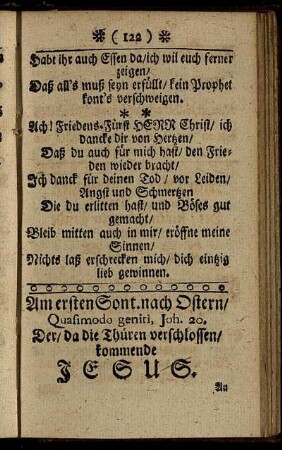 ❊ ( 122 ) ❊
Habt ihr auch Essen da/ ich wil euch ferner
zeigen/
Daß all's muß seyn erfüllt/ kein Prophet
kont's verschweigen.
* *
Ach! Friedens-Fürst HERR Christ/ ich
dancke dir von Hertzen/
Daß du auch für mich hast/ den Frie-
den wieder bracht/
Ich danck für deinen Tod/ vor Leiden/
Angst und Schmertzen
Die du erlitten hast/ und Böses gut
gemacht/
Bleib mitten auch in mir/ eröffne meine
Sinnen/
Nichts laß erschrecken mich/ dich eintzig
lieb gewinnen.
Am ersten Sont. nach Ostern/
Quasimodo geniti, Joh. 20.
Der/ da die Thüren verschlossen/
kommende
JESUS.
An